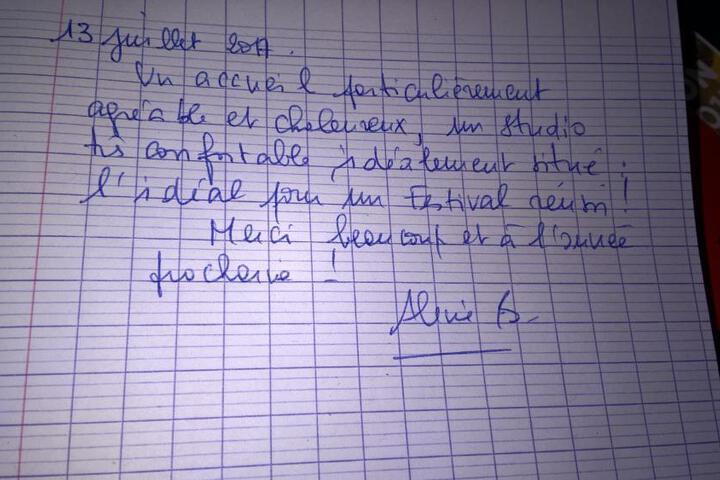 13 juillet 2017.
Un accueil particulièrement
agréable et chaleureux, un studio
très confortable, idéalement situé :
l'idéal pour un Festival réussi !
Merci beaucoup et à l'année
prochaine !